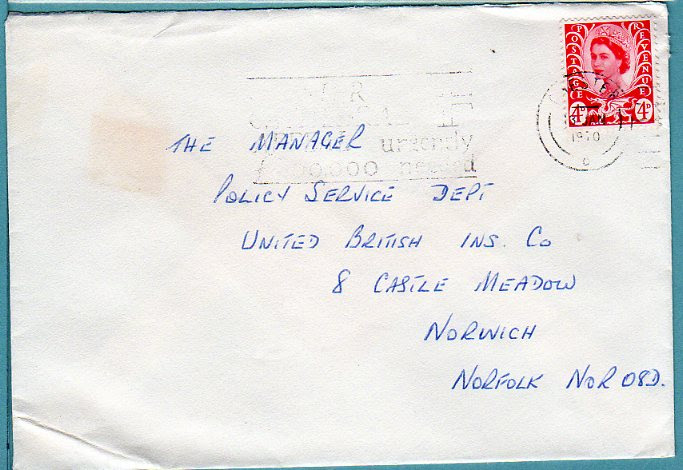 POSTAGE REVENUE
4D 4D
1970
C
urgently
needed
THE MANAGER
POLICY SERVICE DEPT
UNITED BRITISH INS. CO
8 CASTLE MEADOW
NORWICH
NORFOLK NOR 08D.